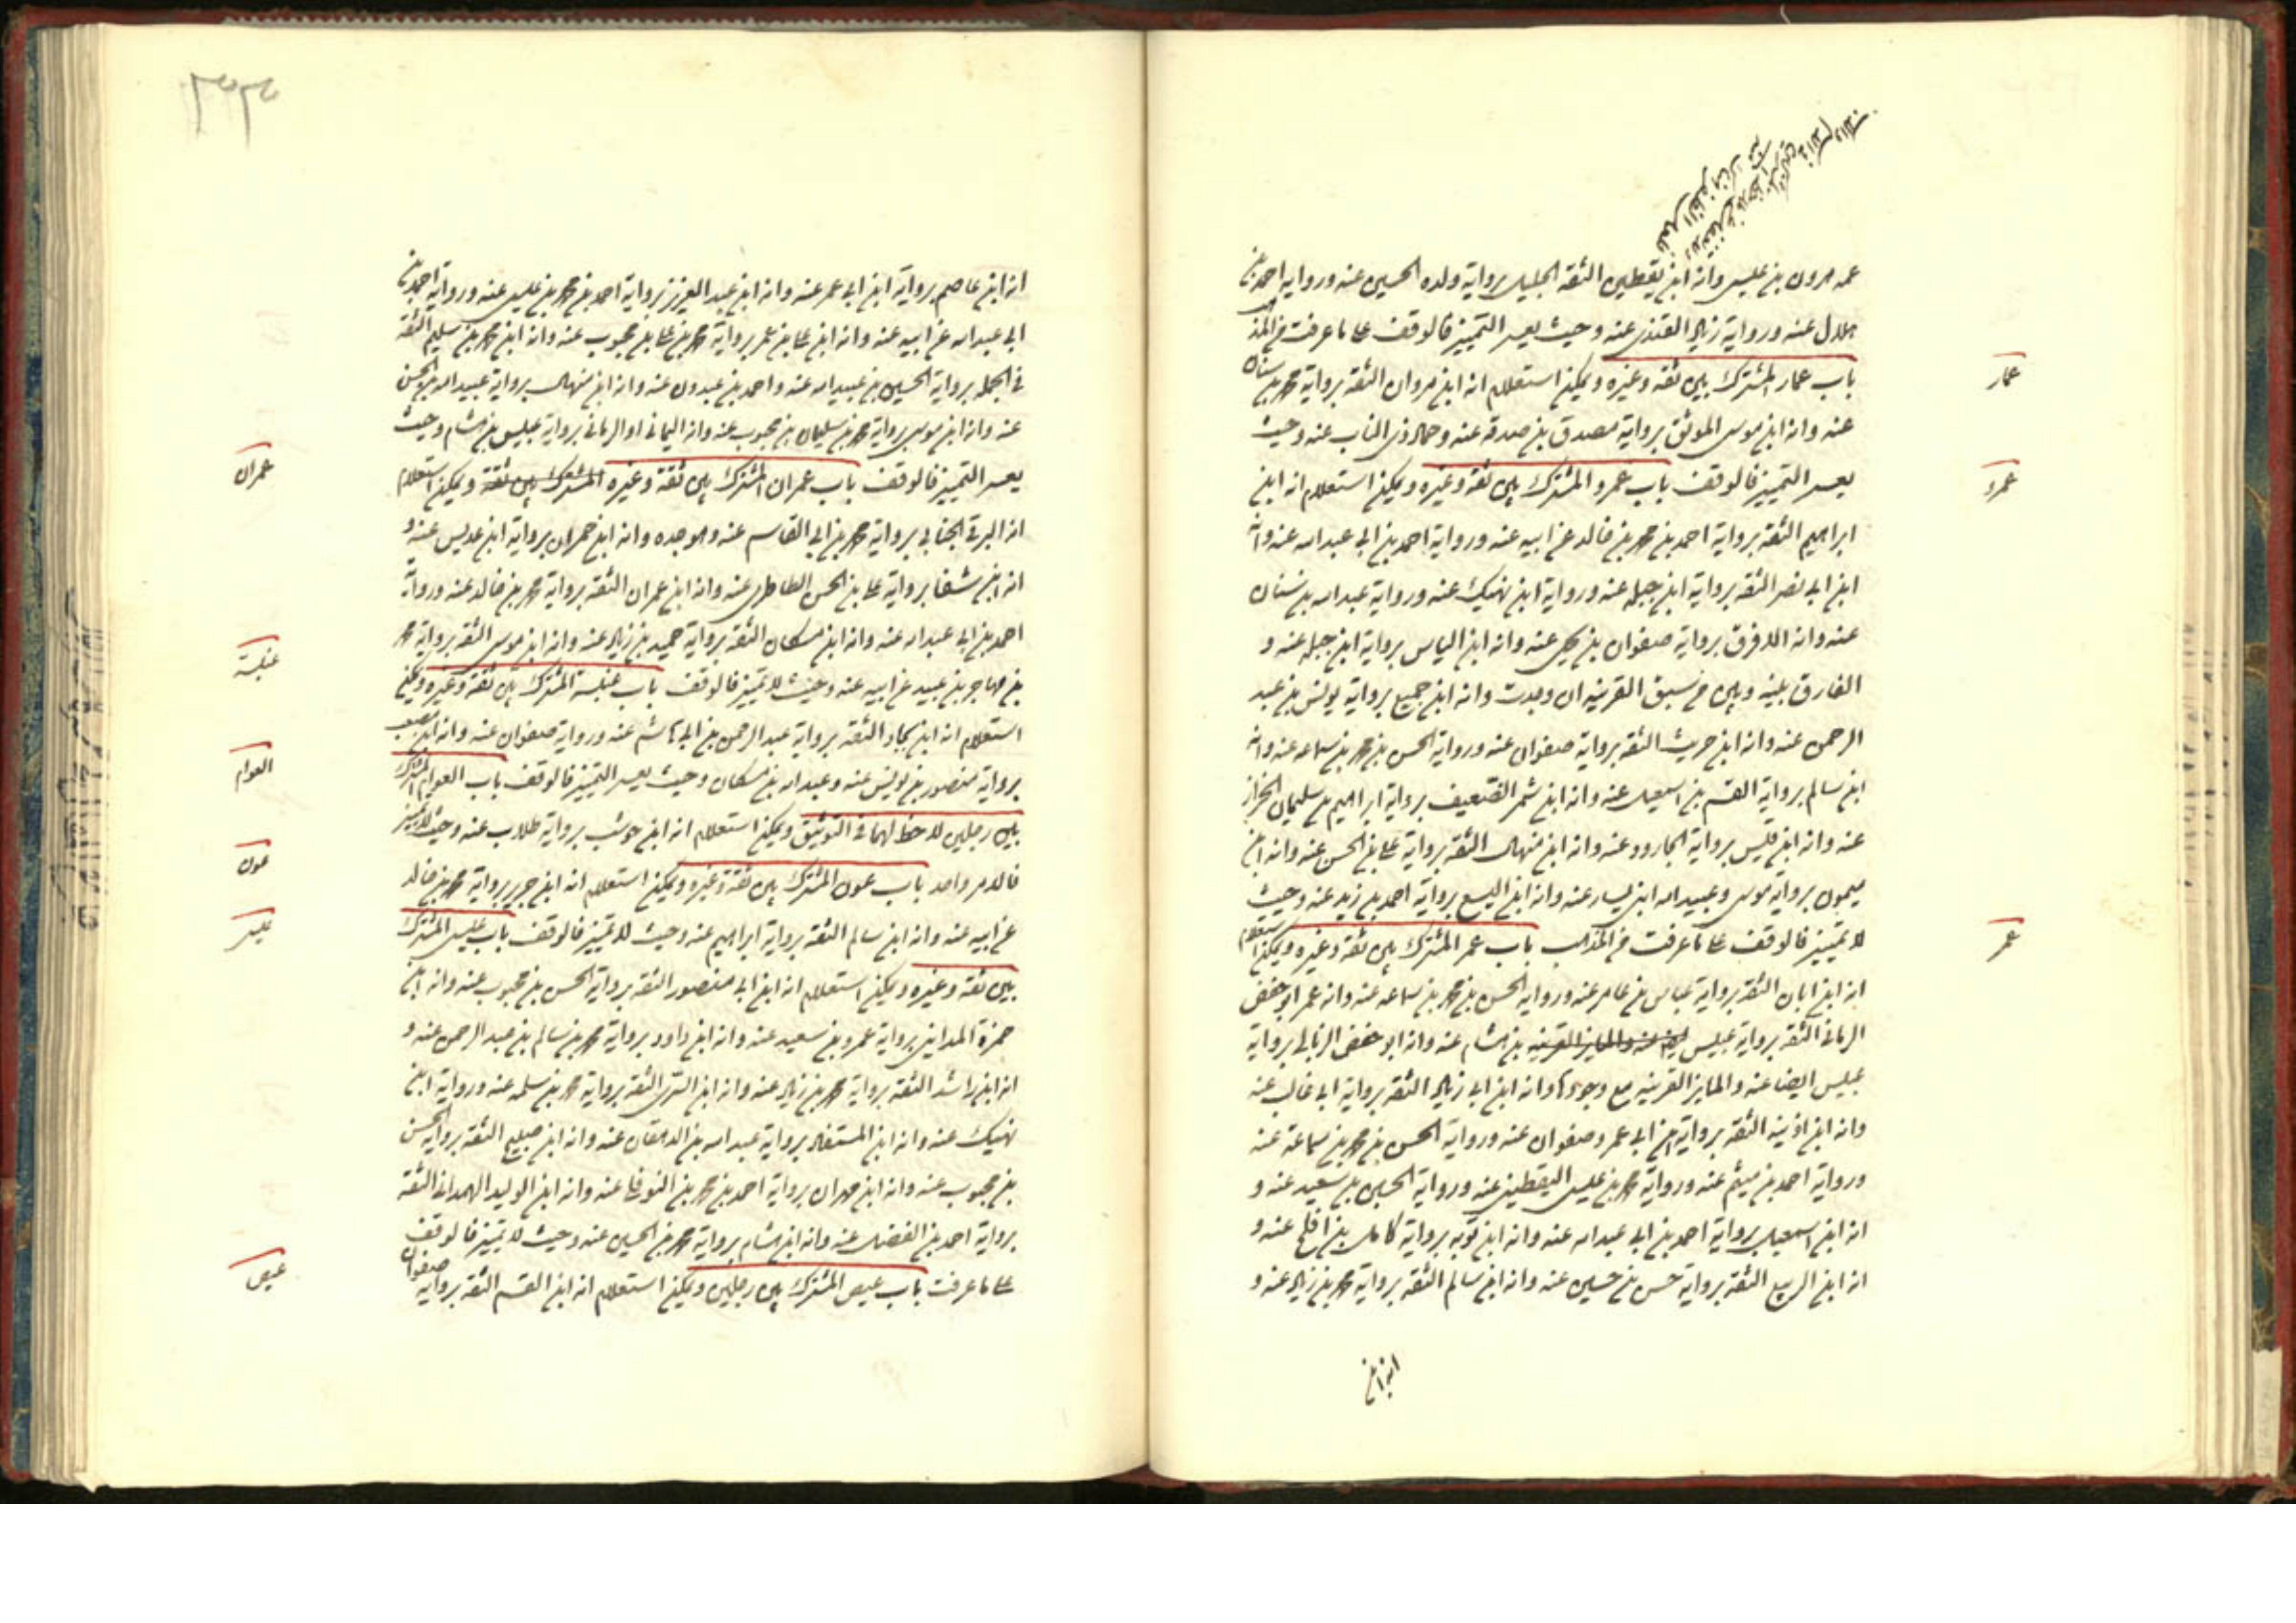 عنه هرون بن عيسى وانه ابن يقطين الثقة الجليل برواية ولده الحسين عنه ورواية احمد بن
هلال عنه ورواية زياد القندى عنه وحيث يعسر التمييز فالوقف على ما عرفت من المذ
باب عمار المشترك بين ثقه وغيره ويمكن استعلام انه ابن مروان الثقه برواية محمد بن سنان
عمار
عنه وانه ابن موسى الموثق برواية مصدق بن صدقه عنه وحماد ذى الناب عنه وحيث
يعسر التمييز فالوقف باب عمرو المشترك بين ثقه وغيره ويمكن استعلام انه ابن
عمرو
ابراهيم الثقه برواية احمد بن محمد بن خالد عن ابيه عنه ورواية احمد بن ابى عبد الله عنه وانه
ابن ابى نصر الثقه برواية ابن جبله عنه ورواية ابن نهيك عنه ورواية عبد الله بن سنان
عنه وانه الافرق برواية صفوان بن يحيى عنه وانه ابن الياس برواية ابن جبله عنه و
الفارق بينه وبين من سبق القرينه ان وجدت وانه ابن جميع برواية يونس بن عبد
الرحمن عنه وانه ابن حريث الثقه برواية صفوان عنه ورواية الحسن بن محمد بن سماعه عنه وانه
ابن سالم برواية القسم بن اسمعيل عنه وانه ابن شمر الضعيف برواية ابراهيم بن سليمان الخزاز
عنه وانه ابن قيس برواية الجارود عنه وانه ابن منهال الثقه برواية على بن الحسن عنه وانه ابن
ميمون برواية موسى وعبيد الله ابنى يسار عنه وانه ابن اليسع برواية احمد بن زيد عنه وحيث
لا تمييز فالوقف على ما عرفت من المذهب باب عمر المشترك بين ثقه وغيره ويمكن استعلام
عمر
انه ابن ابان الثقه برواية عباس بن عامر عنه ورواية الحسن بن محمد بن سماعه عنه وانه عمر ابو حفص
الرمانى الثقه برواية عبيس بن هشام عنه وانه ابو حفص الزبالى برواية
عبيس ايضا عنه والمايز القرينه مع وجودها وانه ابن ابى زياد الثقه برواية ابى غالب عنه
وانه ابن اذينه الثقه برواية ابن ابى عمير وصفوان عنه ورواية الحسن بن محمد بن سماعة عنه
ورواية احمد بن ميثم عنه ورواية محمد بن عيسى اليقطينى عنه ورواية الحسين بن سعيد عنه و
انه ابن اسمعيل برواية احمد بن ابى عبد الله عنه وانه ابن توبه برواية كامل بن افلح عنه و
انه ابن الربيع الثقه برواية حسن بن حسين عنه وانه ابن سالم الثقه برواية محمد بن زياد عنه و
انه ابن
انه ابن عاصم برواية ابن ابى عمير عنه وانه ابن عبد العزيز برواية احمد بن محمد بن عيسى عنه ورواية احمد بن
ابى عبد الله عن ابيه عنه وانه ابن على بن عمر برواية محمد بن على بن محبوب عنه وانه ابن محمد بن سليم الثقة
فى الجمله برواية الحسين بن عبيد الله عنه واحمد بن عبدون عنه وانه ابن منهال برواية عبيد الله بن الحسن
عنه وانه ابن موسى برواية محمد بن سليمان بن محبوب عنه وانه اليمانى او الرمانى برواية عبيس بن هشام وحيث
يعسر التمييز فالوقف باب عمران المشترك بين ثقة وغيره المشترك بين ثقة ويمكن استعلام
عمران
انه البرقى الجنابى برواية محمد بن ابى القاسم عنه وهو جده وانه ابن حمران برواية ابن عديس عنه و
انه ابن شفا برواية على بن الحسن الطاطرى عنه وانه ابن عمران الثقه برواية محمد بن خالد عنه ورواية
احمد بن ابى عبد الله عنه وانه ابن مسكان الثقه برواية حميد بن زياد عنه وانه ابن موسى الثقه برواية محمد
بن مهاجر بن عبيد عن ابيه عنه وحيث لا تمييز فالوقف باب عنبسة المشترك بين ثقة وغيره ويمكن
عنبسة
استعلام انه ابن بجاد الثقه برواية عبد الرحمن بن ابى هاشم عنه ورواية صفوان عنه وانه ابن مصعب
برواية منصور بن يونس عنه وعبد الله بن مسكان وحيث يعسر التمييز فالوقف باب العوام المشترك
العوام
بين رجلين لا حظ لهما فى التوثيق ويمكن استعلام انه ابن حوشب برواية طلاب عنه وحيث لا تمييز
فالامر واحد باب عون المشترك بين ثقة وغيره ويمكن استعلام انه ابن جرير برواية محمد بن خالد
عون
عن ابيه عنه وانه ابن سالم الثقه برواية ابراهيم عنه وحيث لا تمييز فالوقف باب عيسى المشترك
عيسى
بين ثقه وغيره ويمكن استعلام انه ابن ابى منصور الثقه برواية الحسن بن محبوب عنه وانه ابن
حمزة المداينى برواية عمرو بن سعيد عنه وانه ابن داود برواية محمد بن سالم بن عبد الرحمن عنه و
انه ابن راشد الثقه برواية محمد بن زياد عنه وانه ابن السرى الثقه برواية محمد بن سلمه عنه ورواية ابن
نهيك عنه وانه ابن المستفاد برواية عبيد الله بن الدهقان عنه وانه ابن صبيح الثقه برواية الحسن
بن محبوب عنه وانه ابن مهران برواية احمد بن محمد بن النوفلى عنه وانه ابن الوليد الهمدانى الثقه
برواية احمد بن الفضل عنه وانه ابن هشام برواية محمد بن الحسين عنه وحيث لا تمييز فالوقف
على ما عرفت باب عيص المشترك بين رجلين ويمكن استعلام انه ابن القسم الثقه برواية صفوان
عيص